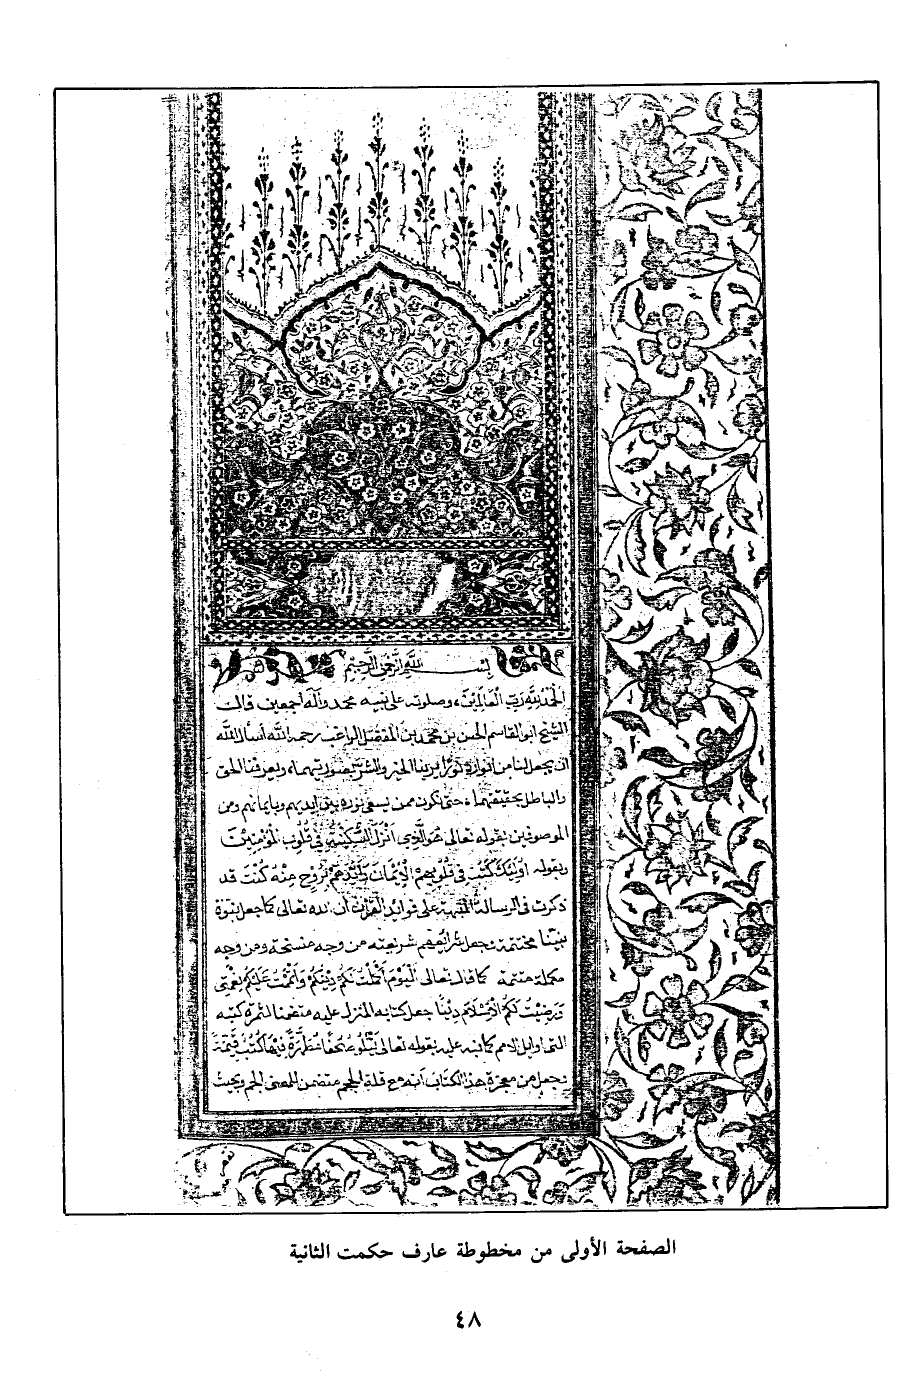 بسم الله الرحمن الرحيم
الحمد لله رب العالمين وصلوته على نبيه محمد وآله أجمعين قال
الشيخ ابو القاسم الحسن بن محمد بن المفضل الراغب رحمه الله أسأل الله
ان يجعل لنا من انواره نورا يرينا الخير والشر بصورتيهما ويعرفنا الحق
والباطل بحقيقتهما حتى نكون ممن يسعى نوره بين أيديهم وبايمانهم ومن
الموصوفين بقوله تعالى هُوَ الَّذِي أَنْزَلَ السَّكِينَةَ فِي قُلُوبِ الْمُؤْمِنِينَ
وبقوله أُولَئِكَ كَتَبَ فِي قُلُوبِهِمُ الْإِيمَانَ وَأَيَّدَهُمْ بِرُوحٍ مِنْهُ كنت قد
ذكرت في الرسالة المنبهة على فوائد القرآن أن الله تعالى كما جعل نبوة
نبينا مختتمة وجعل شرائعهم شريعته من وجه منتسخة ومن وجه
مكملة متممة كما قال تعالى الْيَوْمَ أَكْمَلْتُ لَكُمْ دِينَكُمْ وَأَتْمَمْتُ عَلَيْكُمْ نِعْمَتِي
وَرَضِيتُ لَكُمُ الْإِسْلَامَ دِينًا جعل كتابه المنزل عليه متضمنا لثمرة كتبه
التي اولاها اوائل الامم كما نبه عليه بقوله تعالى يَتْلُو صُحُفًا مُطَهَّرَةً فِيهَا كُتُبٌ قَيِّمَةٌ
وجعل من معجزة هذا الكتاب أنه مع قلة الحجم متضمن للمعنى الجم وبحيث
الصفحة الأولى من مخطوطة عارف حكمت الثانية
٤٨